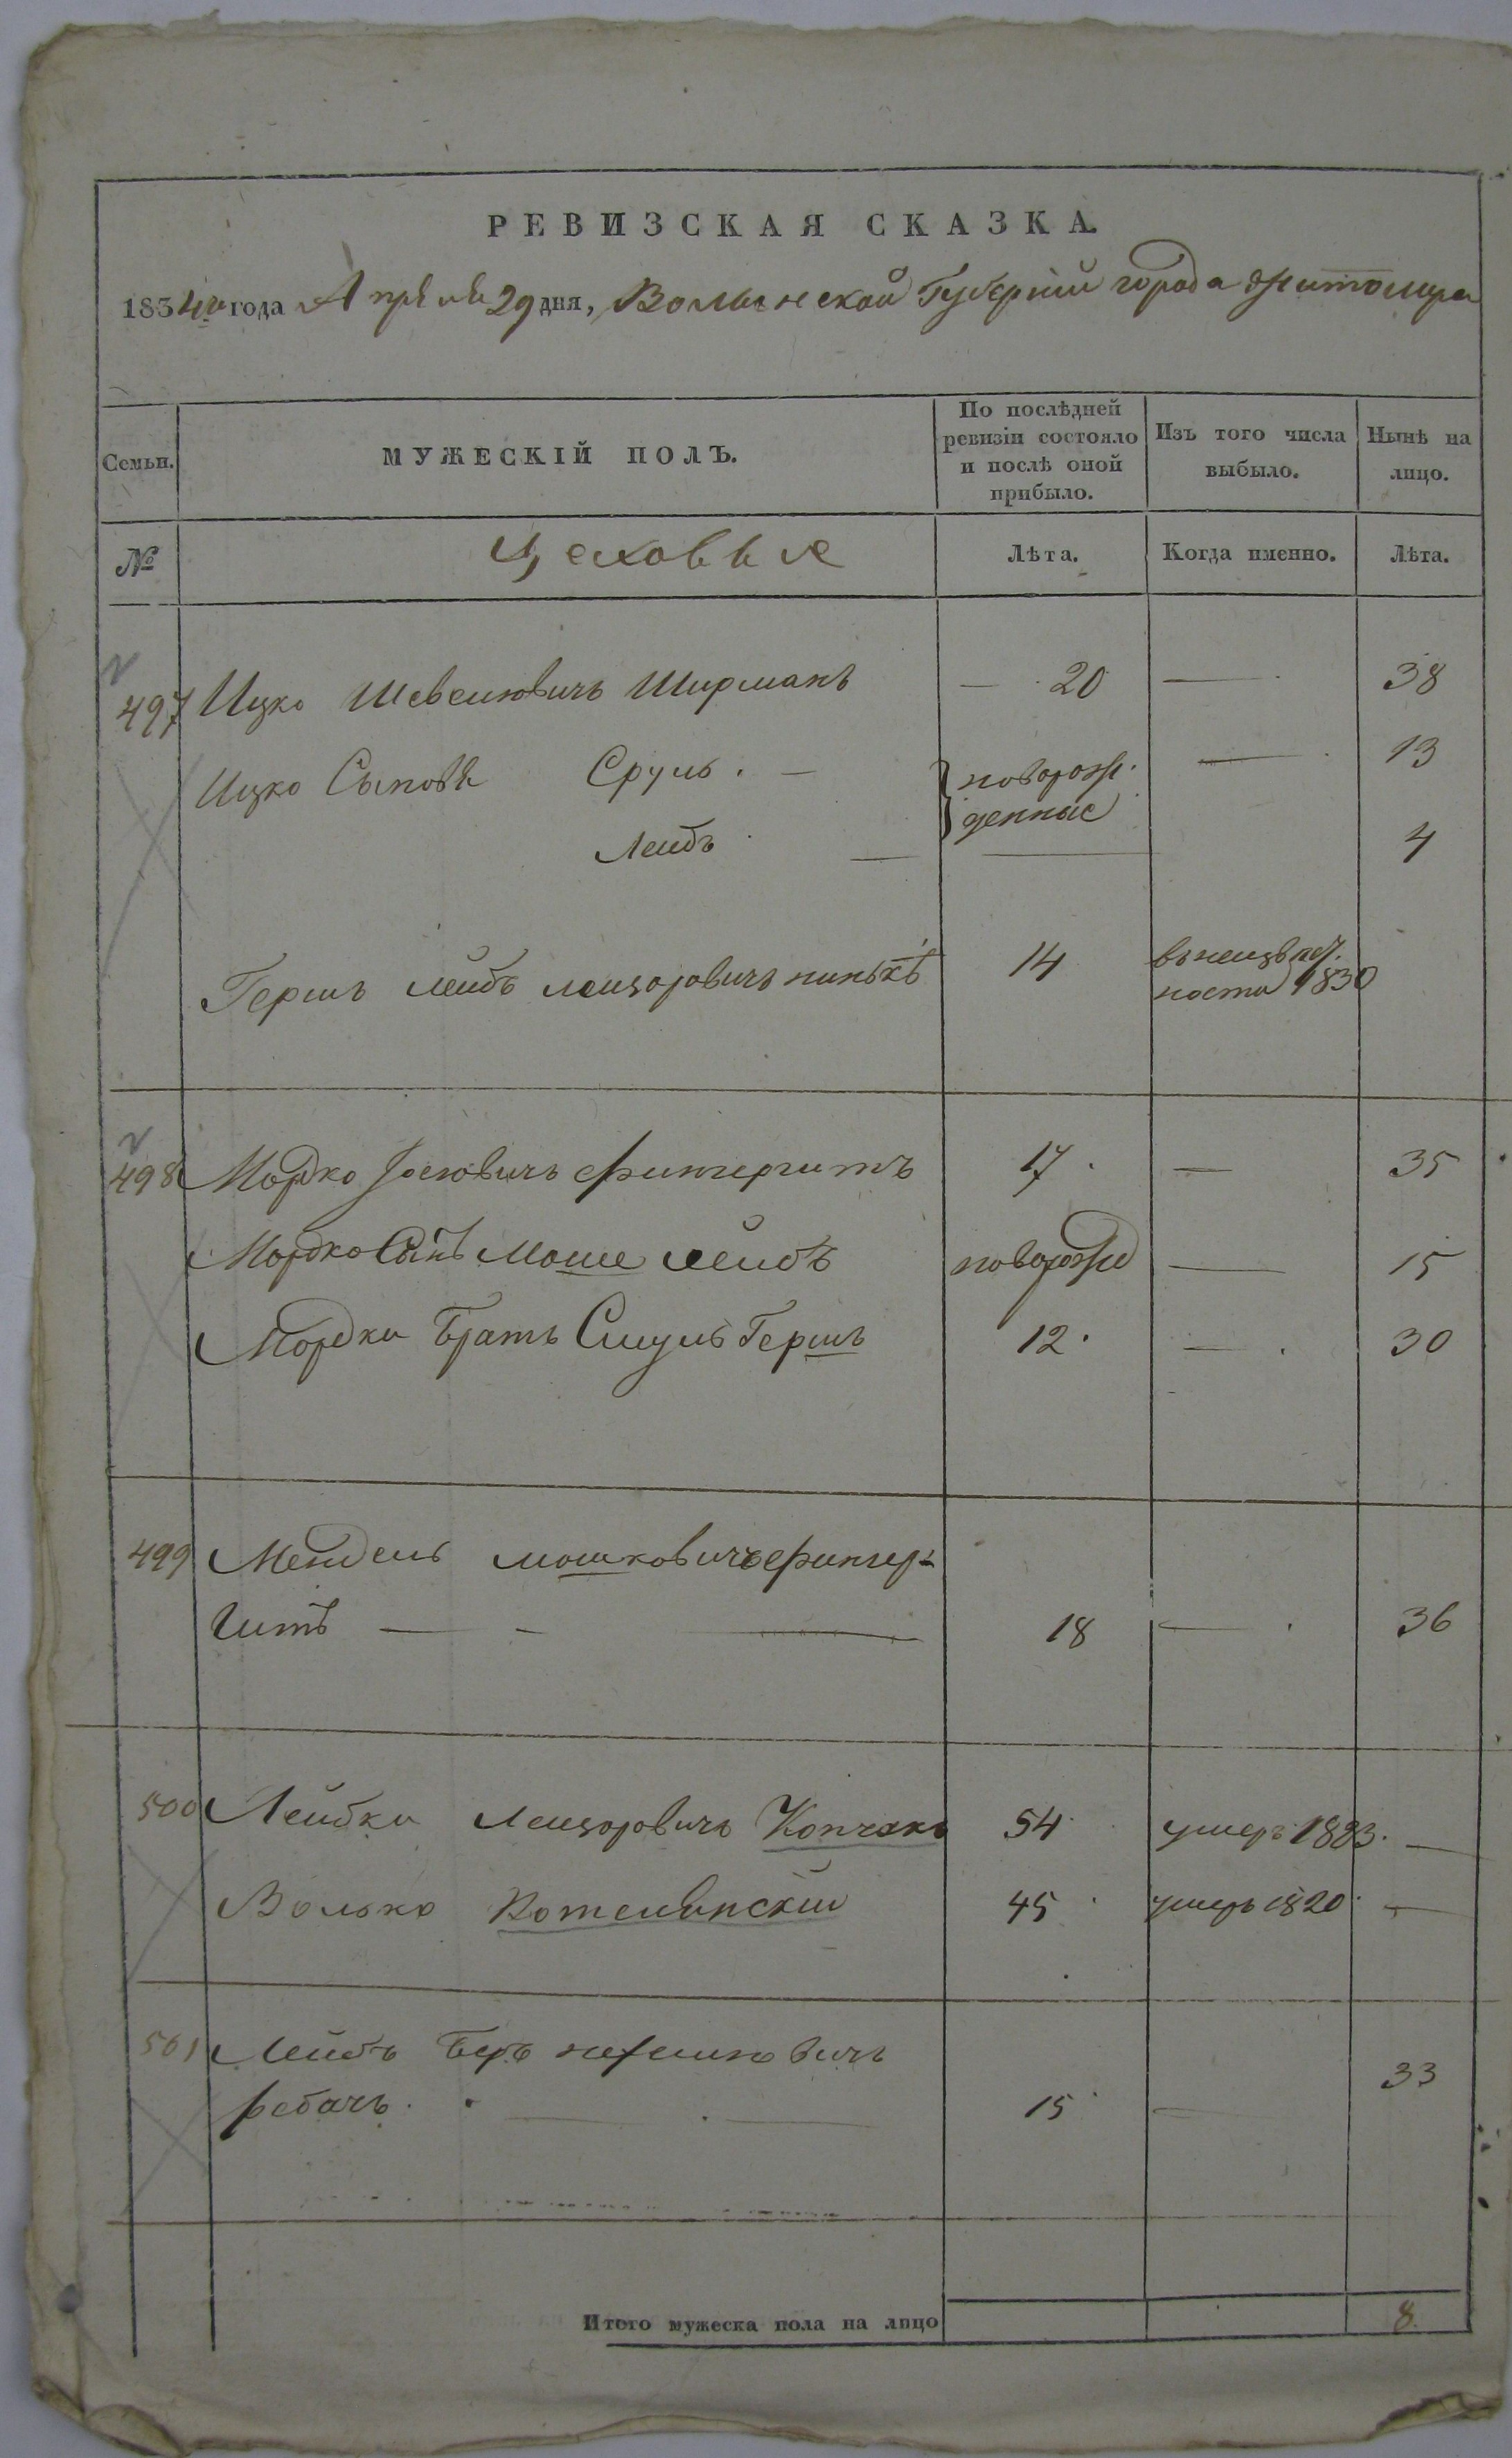 РЕВИЗСКАЯ СКАЗКА.
1834го года Апреля 29 дня, Волынской Губерніи города Житомира
Семьи.
МУЖЕСКІЙ ПОЛЪ.
По послѣдней
ревизіи состояло
и послѣ оной
прибыло.
Изъ того числа
выбыло.
Нынѣ на
лицо.
№
Цеховые
Лѣта.
Когда именно.
Лѣта.
497 Ицко Шевелювичъ Ширманъ — 20 — 38
Ицко Сыновя Сруль. — новорож — 13
денные
Лейбъ — 4
Гершъ Лейбъ Лейзоровичъ 14 въ неизвест 1830
ности
498 Мордко Іосювичъ Фингергитъ 17 — 35
Мордко Сынъ Моше Лейбъ новорожд — 15
Мордки Братъ Сшулъ Гершъ 12 — 30
499 Мендель Мошковичъ Фингер-
гитъ — - — 18 — 36
500 Лейбки Лейзоровичъ Копчакъ 54 умеръ 1833. —
Волько Котельянскій 45 умеръ 1820 —
501 Лейбъ Беръ
Ребачъ. — — 15 — 33
Итого мужеска пола на лицо 8.